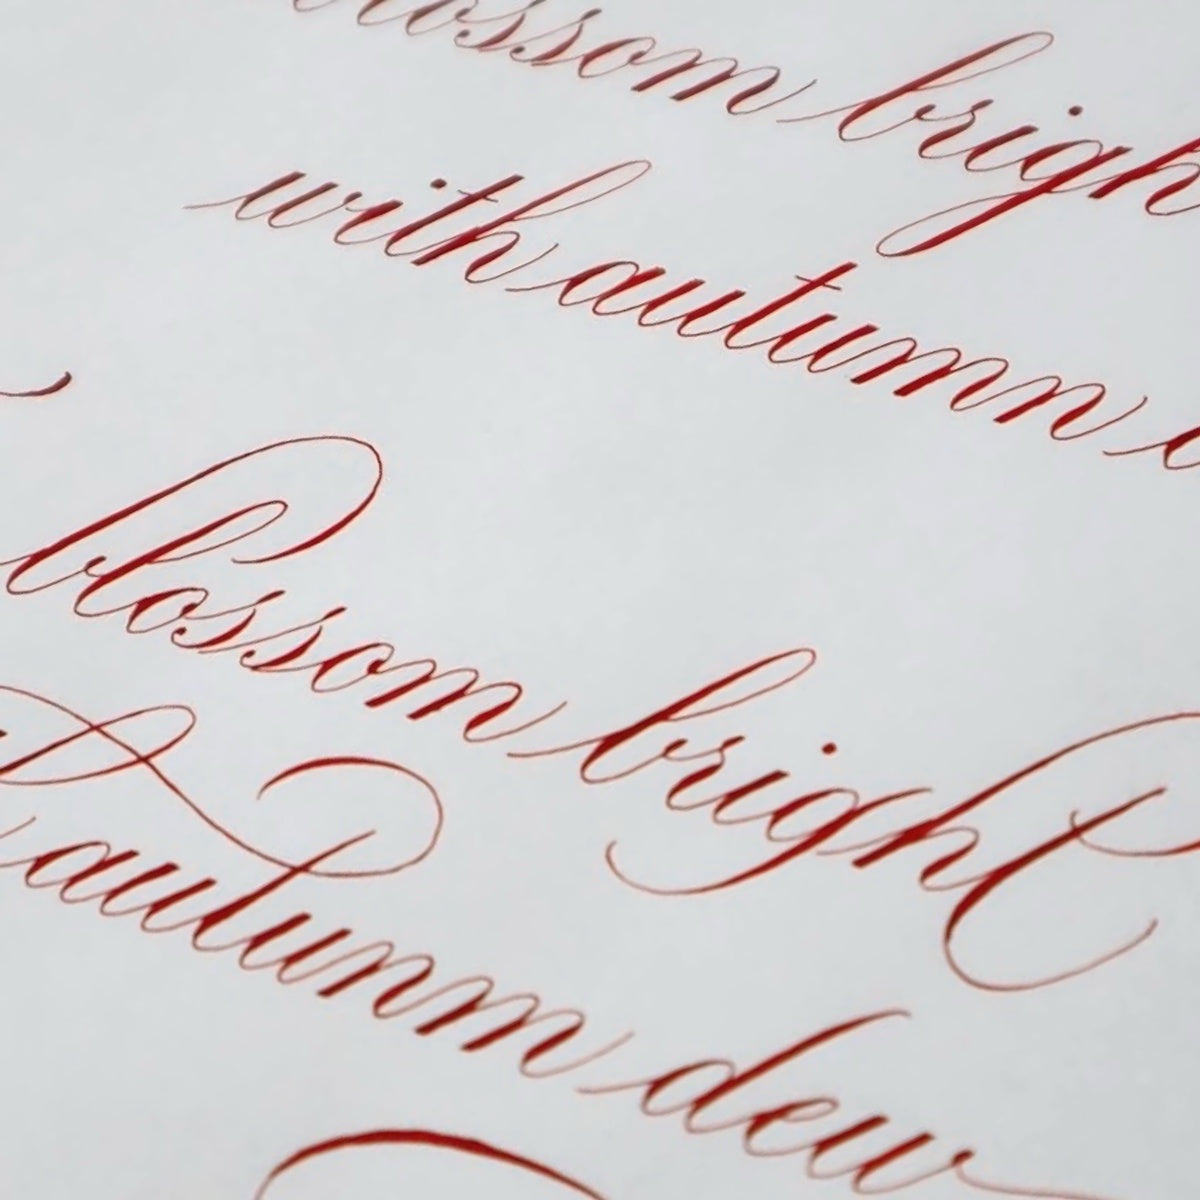 blossom brigh
with autumn d
blossom bright
autumn dew